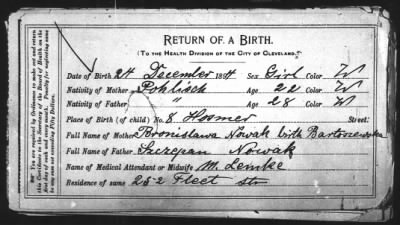 RETURN OF A BIRTH.
(TO THE HEALTH DIVISION OF THE CITY OF CLEVELAND.)
Date of Birth 24 December 1884 Sex Girl Color W
Nativity of Mother Pohlisch Age 22 Color W
Nativity of Father " Age 28 Color W
Place of Birth (of child) No. 8 Hosmer Street:
Full Name of Mother Bronislawa Nowak birth Bartoszewska
Full Name of Father Szczepan Nowak
Name of Medical Attendant or Midwife M. Lemke
Residence of same 252 Fleet str
You are required by Ordinance to make out and return
this Certificate to the Secretary of the Board of Health on the
first day of each and every month. Penalty for neglecting same
is any sum not exceeding Fifty Dollars.